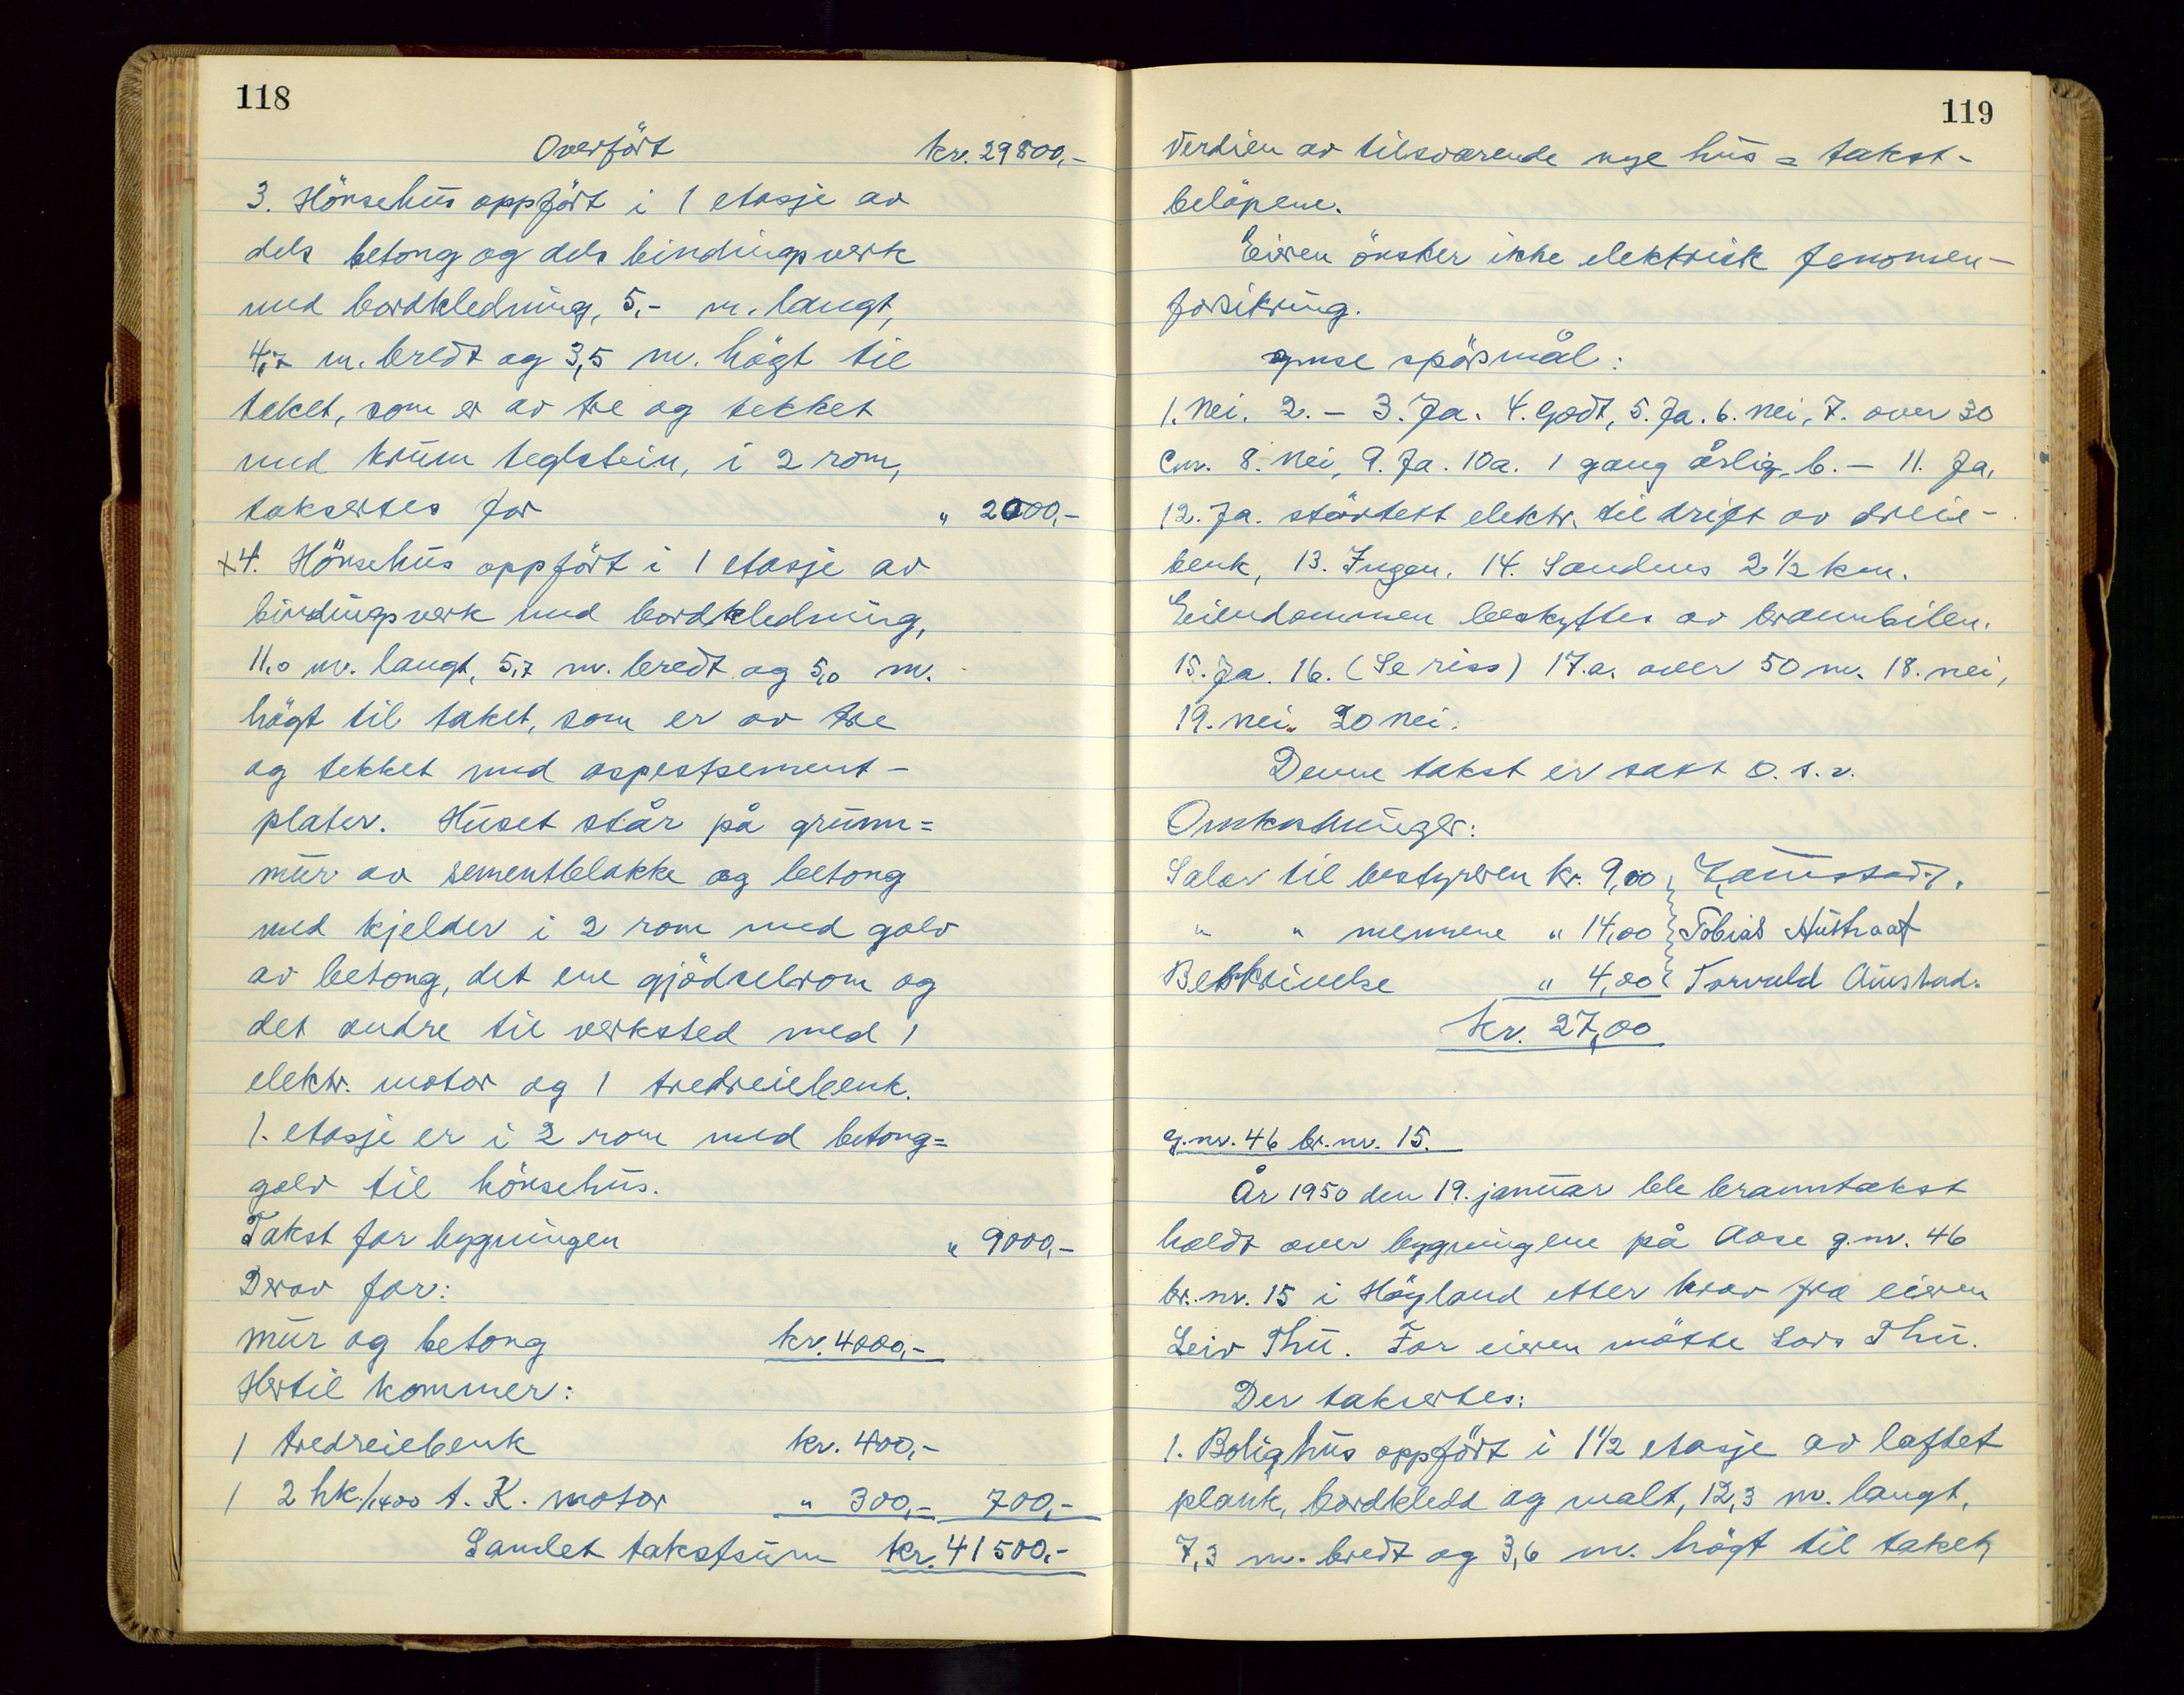 118
Overfört kr. 29800,-
3. Hönsehus oppfört i 1 etasje av
dels betong og dels bindingsverk
med bordkledning, 5,- m. langt,
4,7 m. bredt og 3,5 m. högt til
taket, som er av tre og tekket
med krum teglstein, i 2 rom,
takseres for " 2000,-
x 4. Hönsehus oppfört i 1 etasje av
bindingsverk med bordkledning,
11,0 m. langt, 5,7 m. bredt og 5,0 m.
högt til taket, som er av tre
og tekket med aspestsement-
plater. Huset står på grunn=
mur av sementblokke og betong
med kjelder i 2 rom med golv
av betong, det ene gjödselrom og
det andre til verksted med 1
elektr. motor og 1 tredreiebenk.
1. etasje er i 2 rom med betong=
golv til hönsehus.
Takst for bygningen " 9000,-
Derav for:
mur og betong kr. 4000,-
Hertil kommer:
1 tredreiebenk kr. 400,-
1 2 hk./1400 t. K. motor " 300,- 700,-
Samlet takstsum kr. 41500,-
119
Verdien av tilsvarende nye hus = takst-
belöpene.
Eieren önsker ikke elektrisk fenomen-
forsikring.
spörsmål:
1. Nei. 2. - 3. Ja. 4. Godt, 5. Ja. 6. Nei, 7. over 30
cm. 8. Nei, 9. Ja. 10a. 1 gang årlig. b. - 11. Ja,
12. Ja. elektr. til drift av dreie-
benk, 13. Ingen. 14. Sandnes 2 1/2 km.
Eiendommen beskyttes av brannbilen.
15. Ja. 16. (Se riss) 17.a. over 50 m. 18. nei,
19. nei. 20 nei.
Denne takst er satt o.s.v.
Omkostninger:
Salær til bestyreren kr. 9,00
" " mennene " 14,00 Tobias Austraat
Beskrivelse " 4,00 Torvald Austad.
kr. 27,00
g.nr. 46 br.nr. 15.
År 1950 den 19. januar ble branntakst
holdt over bygningene på Aase g.nr. 46
br.nr. 15 i Höyland etter krav fra eieren
Leiv Thu. For eieren mötte Lars Thu.
Der takseres:
1. Bolighus oppfört i 1 1/2 etasje av laftet
plank, bordkledd og malt, 12,3 m. langt,
7,3 m. bredt og 3,6 m. högt til taket,